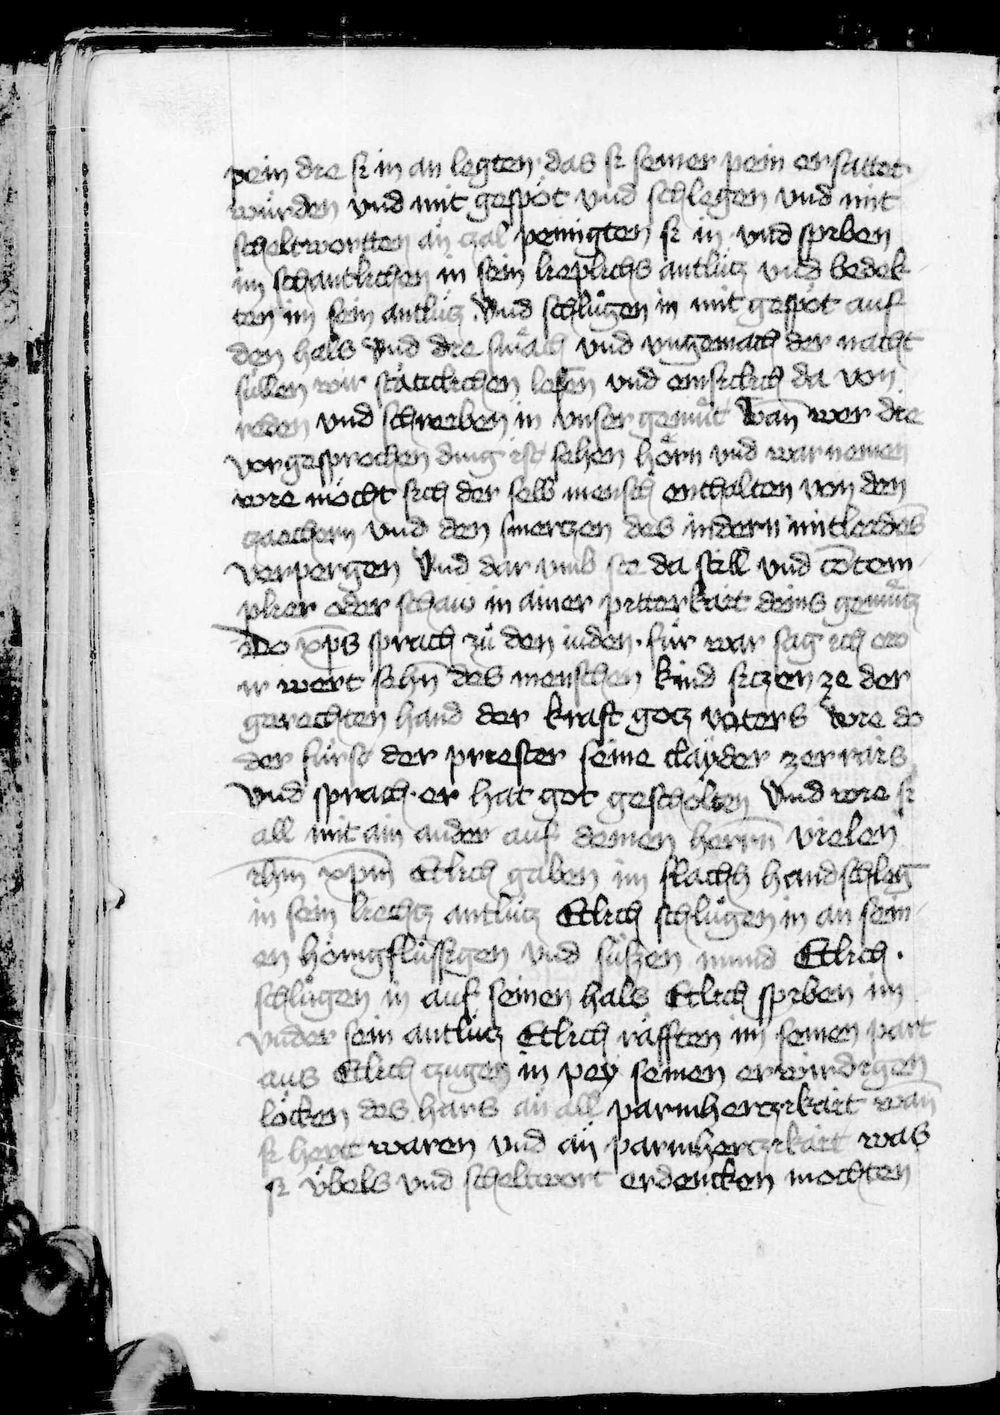 pein die si in an legten · das si seiner pein ersattet
würden vnd mit gespöt vnd schlegen vnd mit
scheltwortten an zal peinigten si in · vnd spiben
im schantlichen in sein lieplichs antlütz vnd bedek-
ten im sein antlütz . Vnd schlůgen in mit gespöt auf
den hals vnd die smäch vnd vngemach der nacht
süllen wir stätticlichen lesen vnd emsiclich da von
reden vnd schreiben in vnser gemüt Wan̄ wer die
vorgesprochen ding ist sehen hörn vnd war nemen
wie möcht sich der selb mensch enthalten von den
zaechern vnd den smertzen des indern mitleidens
verpergen Vnd dar vmb ste da still vnd co̅tem-
plier oder schaw in ainer pitterkait deins gemütz
Do xp̅s sprach zů den iuden · für war sag ich ew
ir wert sehn̄ des menschen kind sitzen ze der
gerechten hand der kraft gotz vaters Wie do
der fürst der priester seine clayder zerrais
vnd sprach · er hat got gescholten Vnd wie si
all mit ain ander auf deinen herrn̄ vielen
ihm̅ xpm̅ Etlich gaben im flachs handschleg
in sein liechtz antlütz Etlich schlůgen in an sein-
en hönigflüssigen vnd süssen mund Etlich ·
schlůgen in auf seinen hals Etlich spiben im
vnder sein antlütz Etlich räfften im seinen part
aus Etlich zugen in pey seinen erwirdigen
löcken des hars an all parmhertzikait wan̄
si hert waren vnd an parmhertzikait was
si übels vnd scheltwort erdencken mochten